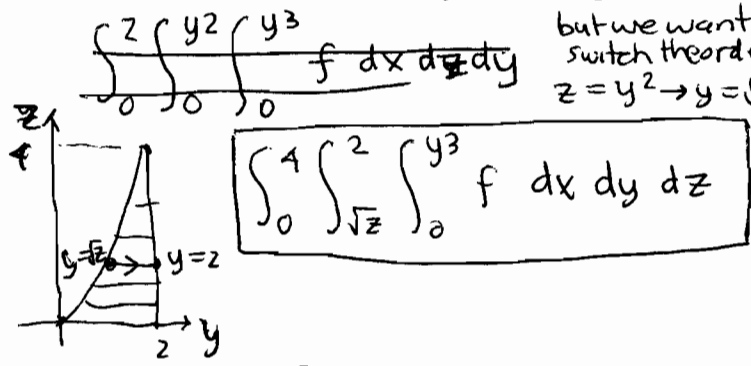 ∫₀² ∫₀^y2 ∫₀^y3 f dx dz dy
but we want
switch the
z = y² → y =
z
4
∫₀⁴ ∫_√z² ∫₀^y3 f dx dy dz
y=√z y=2
2 y